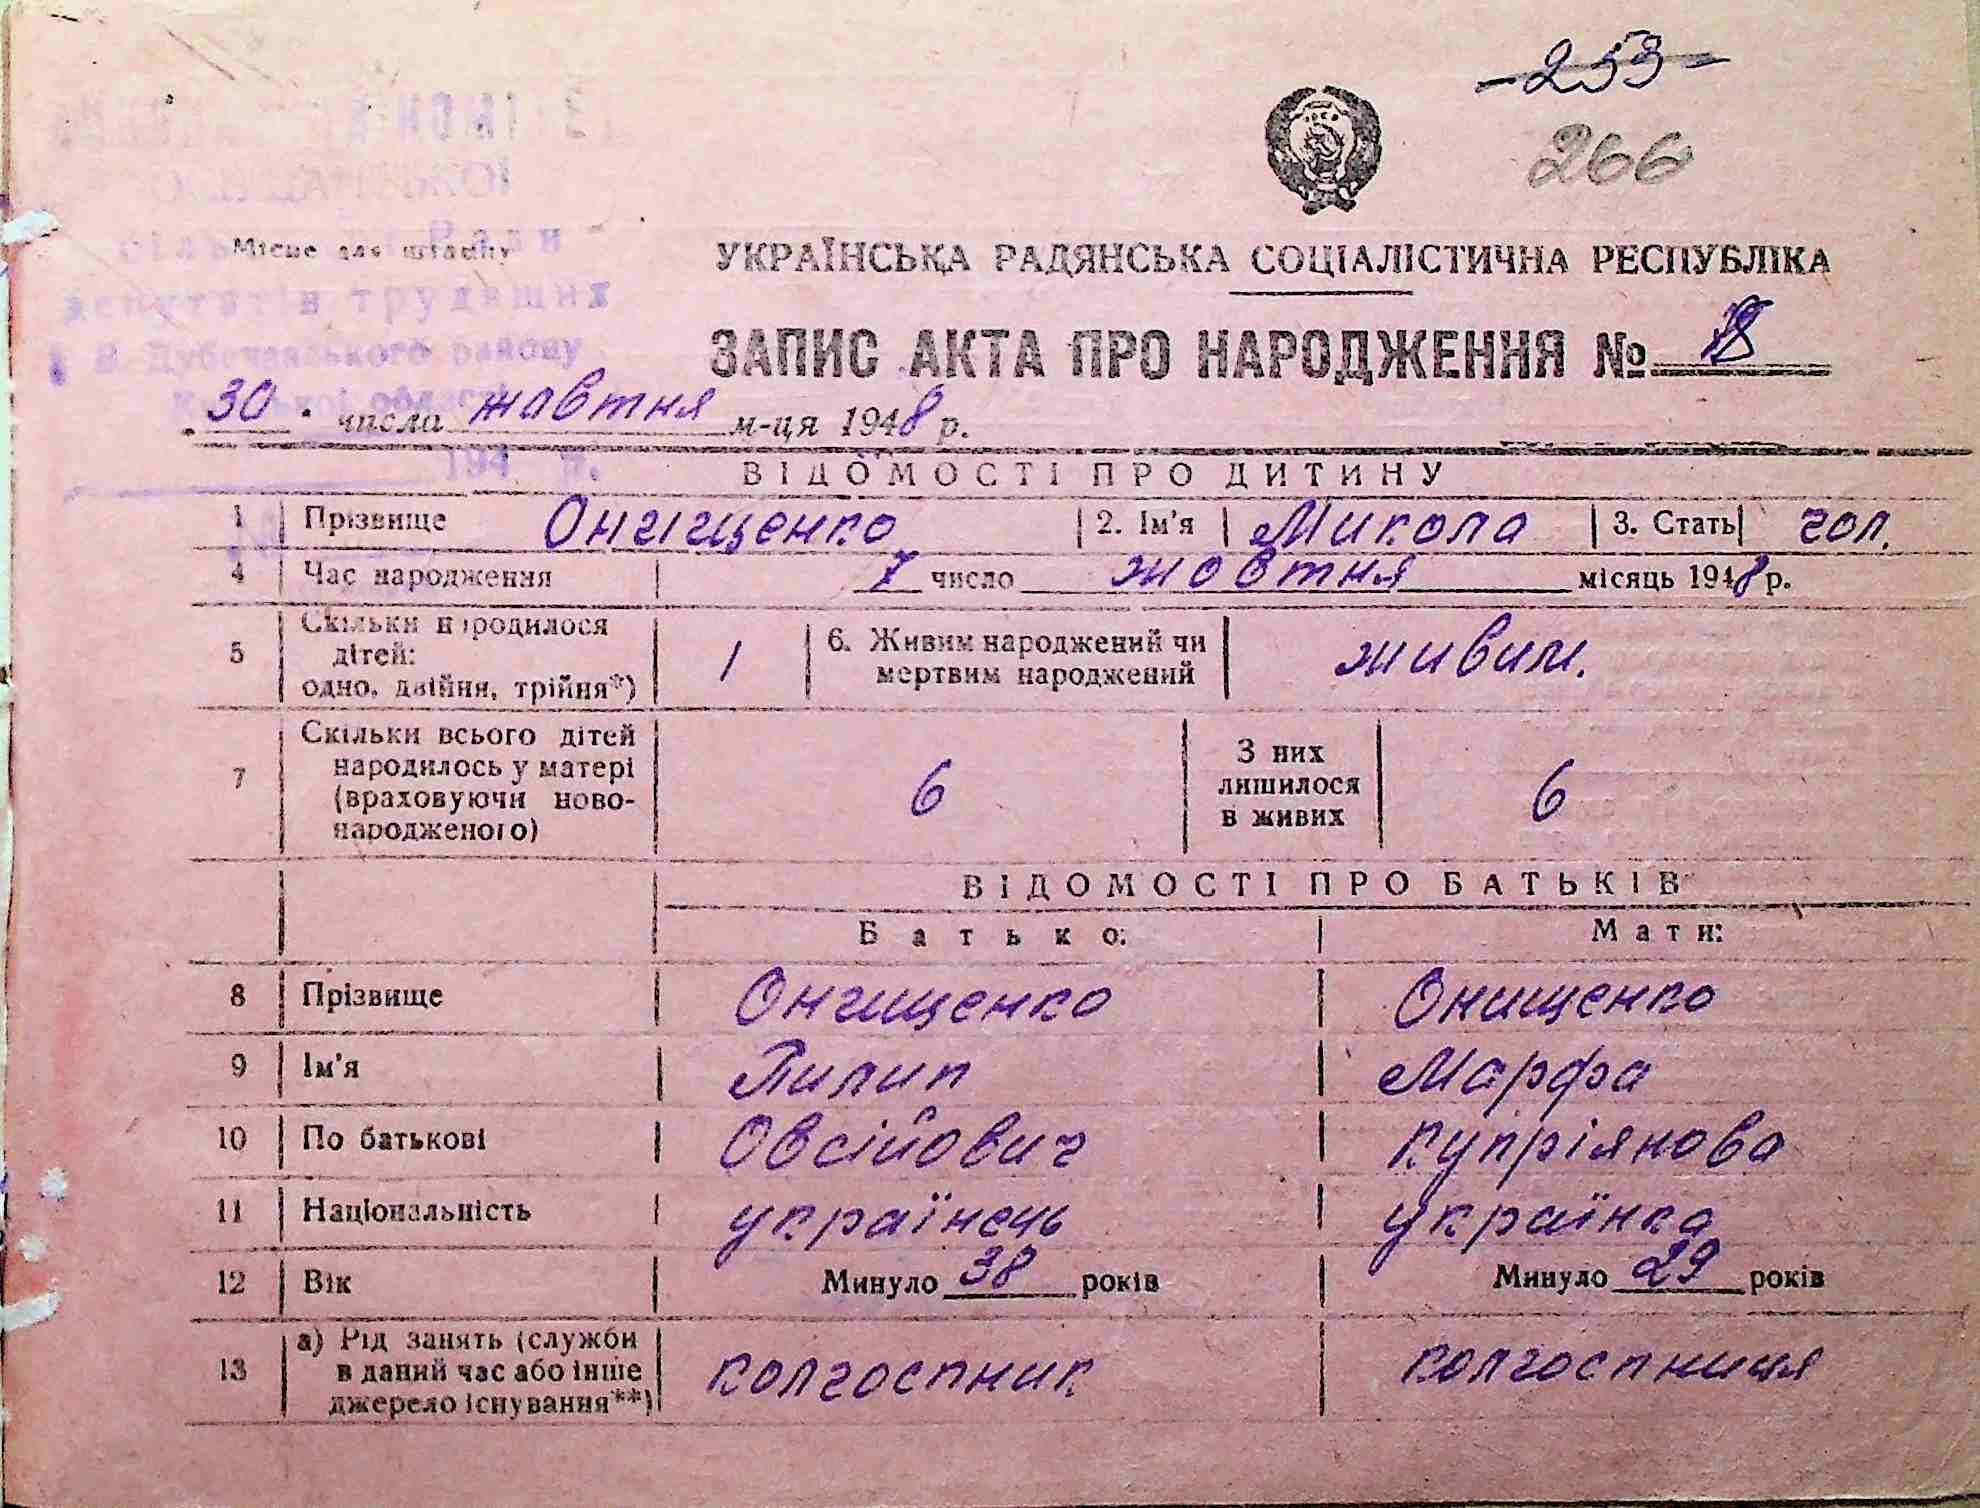 -253-
266
Місце для штампу
Ради
депутатів трудящих
В. Дубечанського району
194 р.
УКРАЇНСЬКА РАДЯНСЬКА СОЦІАЛІСТИЧНА РЕСПУБЛІКА
ЗАПИС АКТА ПРО НАРОДЖЕННЯ № 18
30 числа жовтня м-ця 1948 р.
ВІДОМОСТІ ПРО ДИТИНУ
1 Прізвище Онищенко 2. Ім'я Микола 3. Стать чол.
4 Час народження 7 число жовтня місяць 1948 р.
5 Скільки народилося дітей: одно, двійня, трійня*) 1 6. Живим народжений чи мертвим народжений живим.
7 Скільки всього дітей народилось у матері (враховуючи ново-народженого) 6 З них лишилося в живих 6
ВІДОМОСТІ ПРО БАТЬКІВ
Батько: Мати:
8 Прізвище Онищенко Онищенко
9 Ім'я Пилип Марфа
10 По батькові Овсійович Купріянова
11 Національність українець українка
12 Вік Минуло 38 років Минуло 29 років
13 а) Рід занять (служби в даний час або інше джерело існування**) колгоспник колгоспниця